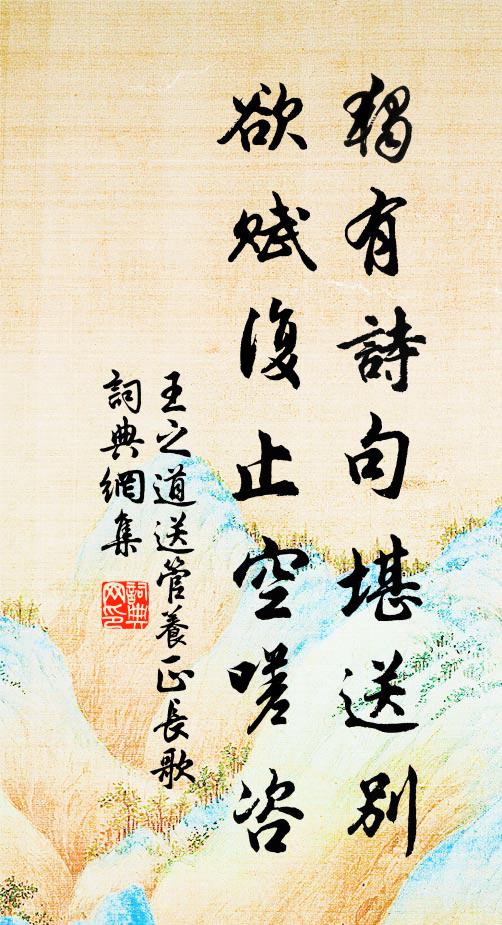 獨有詩句堪送別
欲賦復止空嗟咨
王之道送管養正長歌
詞典網集
詞典
网印